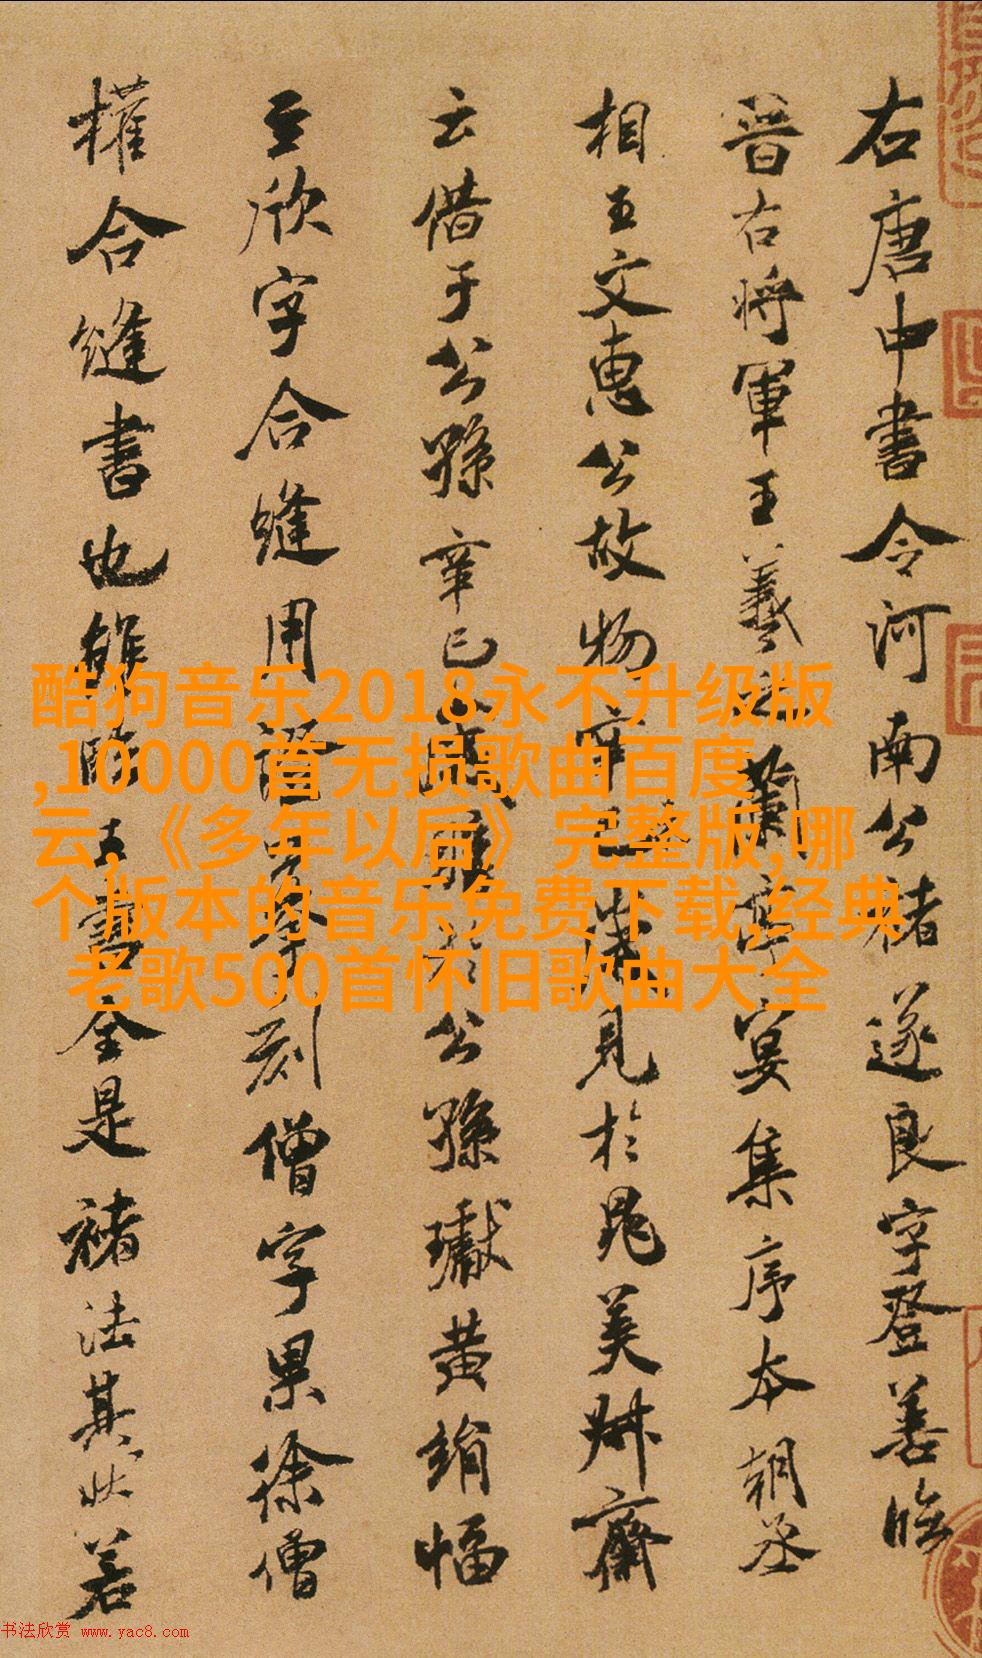 右唐中書令河南公褚遂良字登善臨
晉右將軍王羲之蘭亭宴集序本朝丞
相王文惠公故物辛未歲見於晁美叔齋
云借于公孫辛巳歲購於公孫瓛黄絹幅
至欣字合縫用證摹刻僧字果徐僧
權合縫書也雖臨王書全是褚法其狀若
酷狗音乐2018永不升级版
,10000首无损歌曲百度
云,《多年以后》完整版,哪
个版本的音乐免费下载,经典
老歌500首怀旧歌曲大全
书法欣赏 www.yac8.com